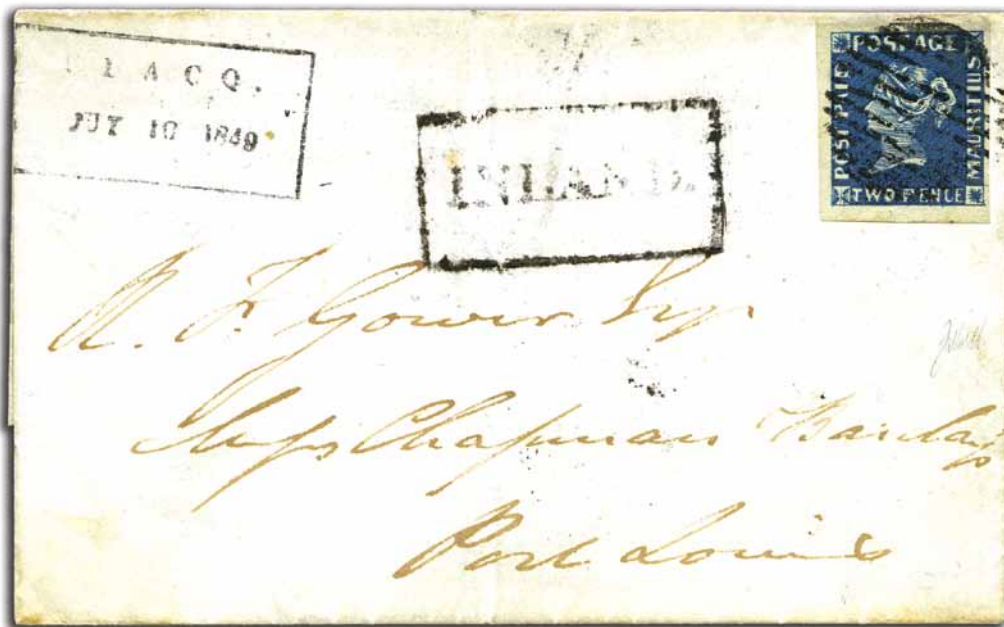 LACQ.
JUY 10 1849
INLAND.
POSTAGE
POST PAID
MAURITIUS
TWO PENCE
F. Gower Esqr
Messrs Chapman Barclay
Port Louis